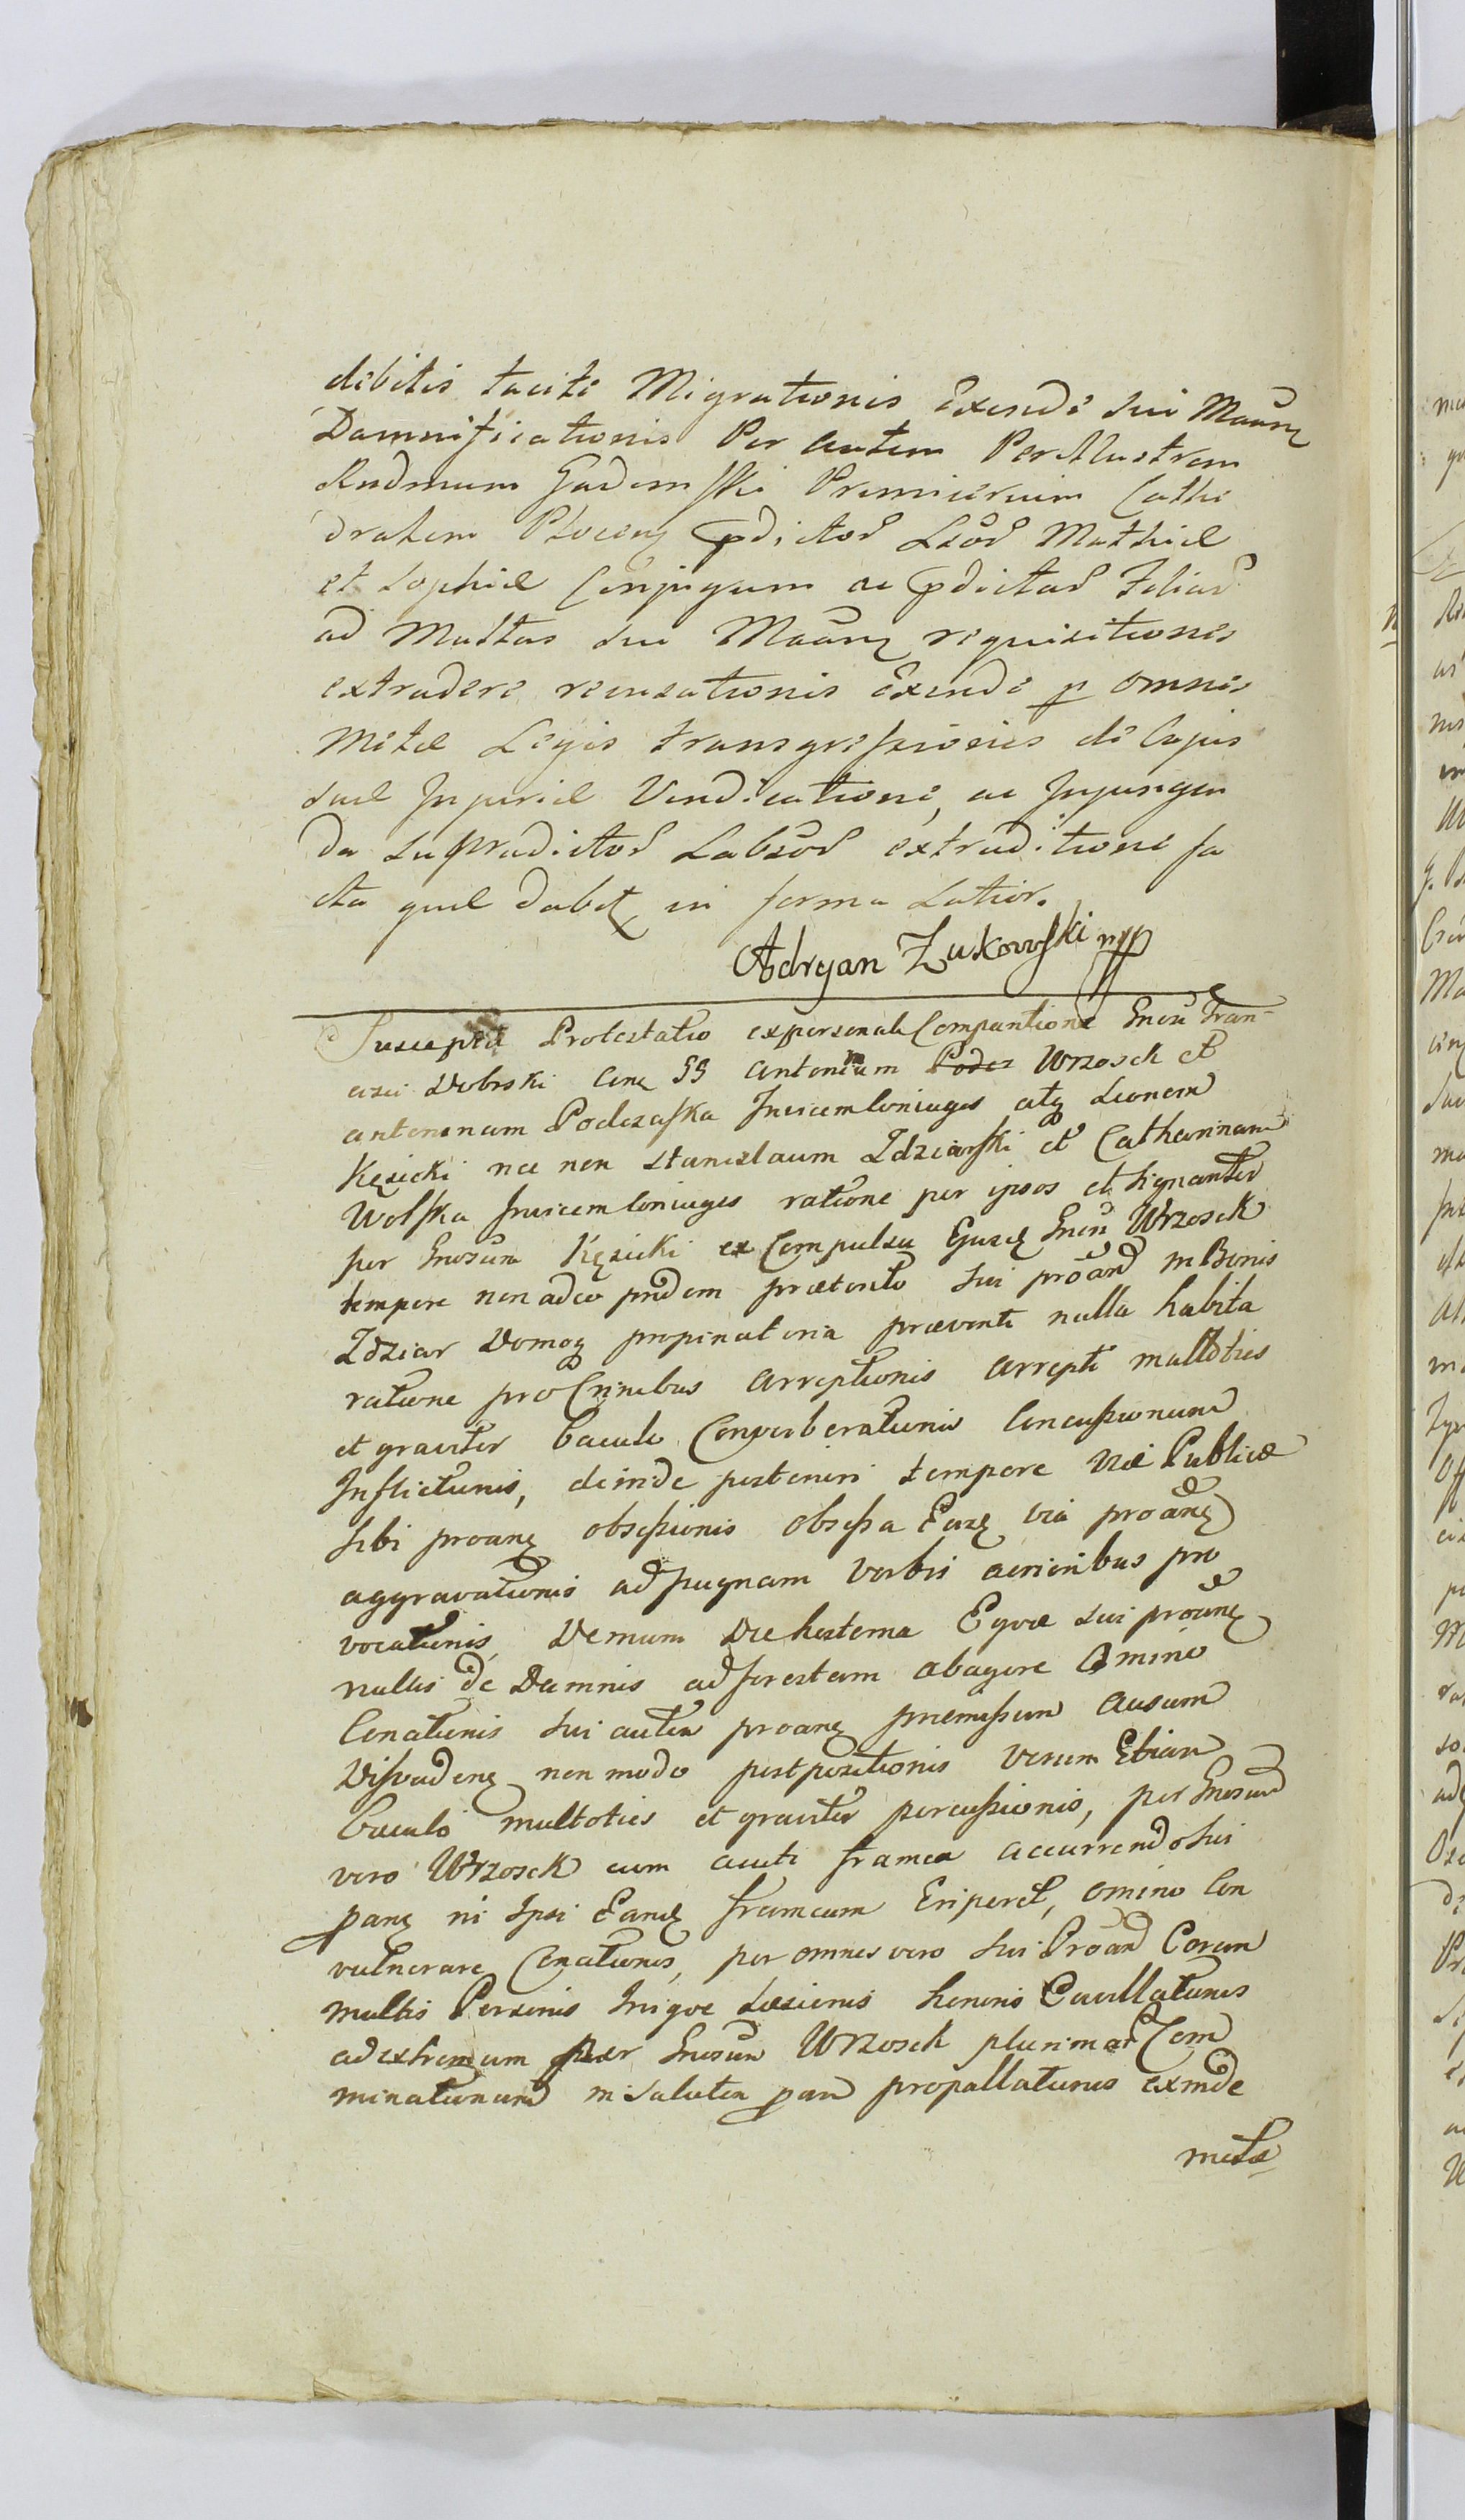 debitis tacite Migrationis Exinde sui Maanz
Damnificationis Per autem Perillustrem
Rndmum Gadomski Premicerium Cathe
dralem Plocenz pdictos Lsos Mathiæ
et Sophiæ Conjugum ac pdictas Filias
ad Multas sui Maanz requisitiones
extradere recusationis Exinde p omnes
metæ Legis transgressionis de Cujus
suæ Injuriæ Vindicatione, ac Injungen
da supradictos Labsos extraditione fa
cta quæ dabitz in forma Latior.
Adryan Zukowski mpp
Suscepta Protestatio expersonali Comparitione Gnosi Fran-
cisci Dobrski Cnz GG Antonium Wrzosek et
antoninam Podczaska Invicem Coniuges atqz Leonem
Kęsicki nec non Stanislaum Zdziarski et Catharinam
Wolska Invicem Coniuges ratione per ipsos et signanter
per Gnosum Kęsicki ex Compulsu Ejusdz Gnosi Wrzosek
tempore non adeo pridem præterito sui proand in Bonis
Zdziar Domoqz propinatoria præventi nulla habita
ratione pro Crinibus arreptionis arrepti multoties
et graviter baculo Converberationis Concussionum
Inflictionis, deinde posteriori tempore viæ Publicæ
sibi proanz obsessionis obsessa Eadz via proanz
aggravationis ad pugnam verbis acrioribus pro
vocationis, Demum Die hesterna Equæ sui proanz
nullis de Damnis ad forestam abagere omino
Conationis sui autem proanz præmissum ausum
Disvadenz non modo postpositionis verum Etiam
baculo multoties et graviter percussionis, per Gnosum
vero Wrzosek cum acuta framea accurrendo sui
panz ni Ipsi Eandz frameam Eriperet, omino Con
vulnerare Conationis, per omnes vero sui Proand Coram
multis Personis Inique Læsionis honoris Cavillationis
ad extremum per Gnosum Wrzosek plurimas Com
minationum in salutem pan propallationis exinde
metæ